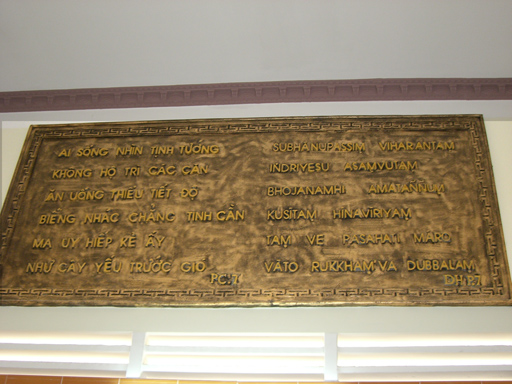 AI SỐNG NHÌN TỊNH TƯỚNG
KHÔNG HỘ TRÌ CÁC CĂN
ĂN UỐNG THIẾU TIẾT ĐỘ
BIẾNG NHÁC CHẲNG TINH CẦN
MA UY HIẾP KẺ ẤY
NHƯ CÂY YẾU TRƯỚC GIÓ
PC:7
SUBHANUPASSIM VIHARANTAM
INDRIYESU ASAMVUTAM
BHOJANAMHI AMATANNUM
KUSITAM HINAVIRIYAM
TAM VE PASAHATI MARO
VATO RUKKHAM'VA DUBBALAM
DH:7